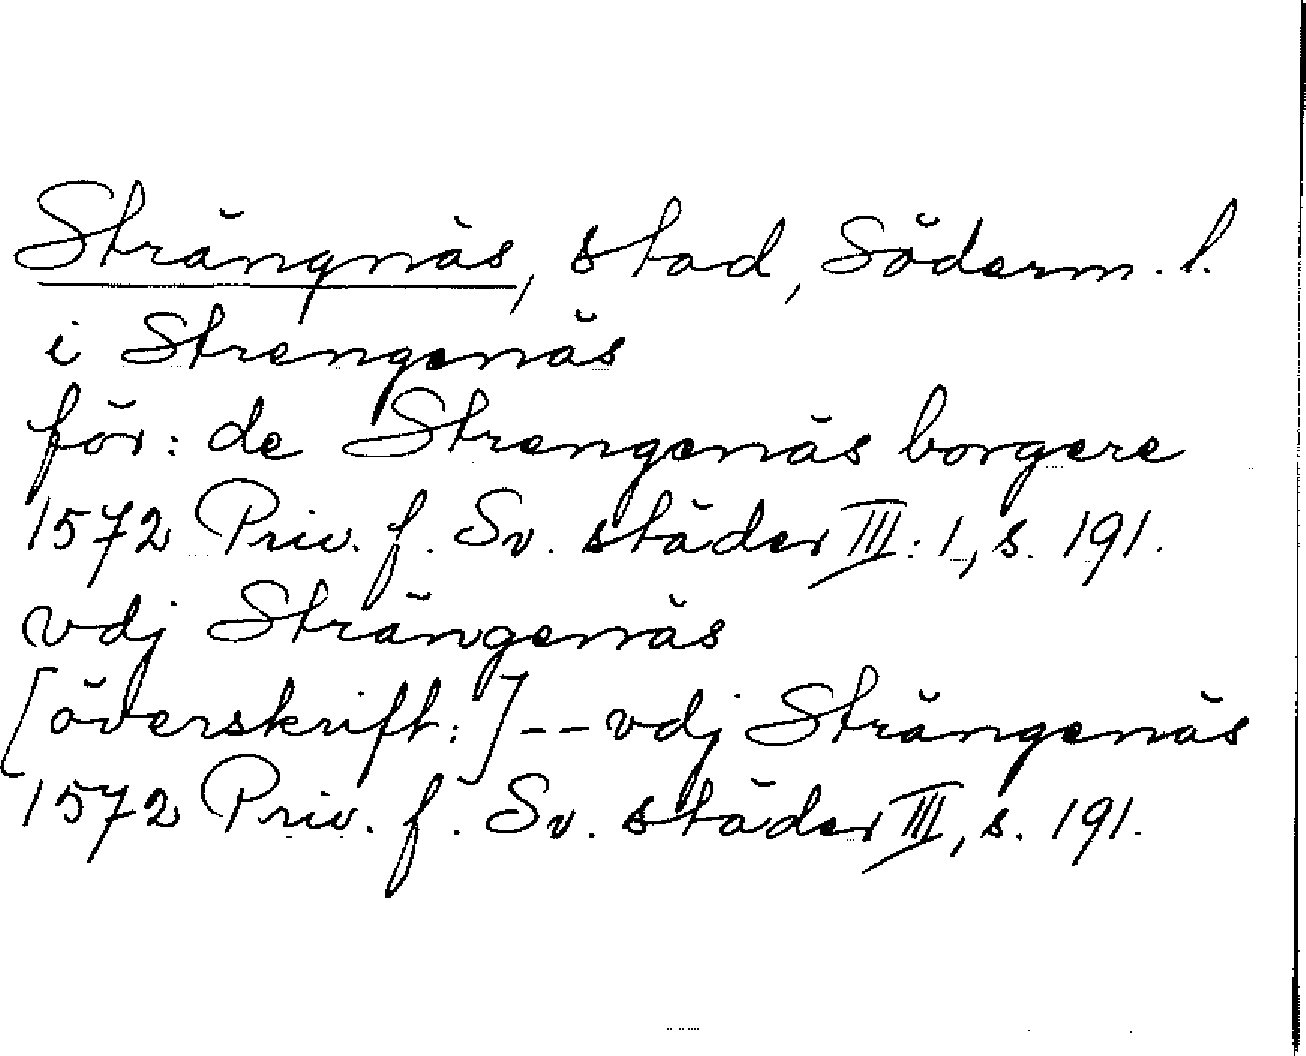 Strängnäs, stad, Söderm. l.
i Strengenäs
för: de Strengenäs borgere
1572 Priv. f. Sv. städer III: 1, s. 191.
vdj Strängenäs
[överskrift:] -- vdj Strängenäs
1572 Priv. f. Sv. städer III, s. 191.